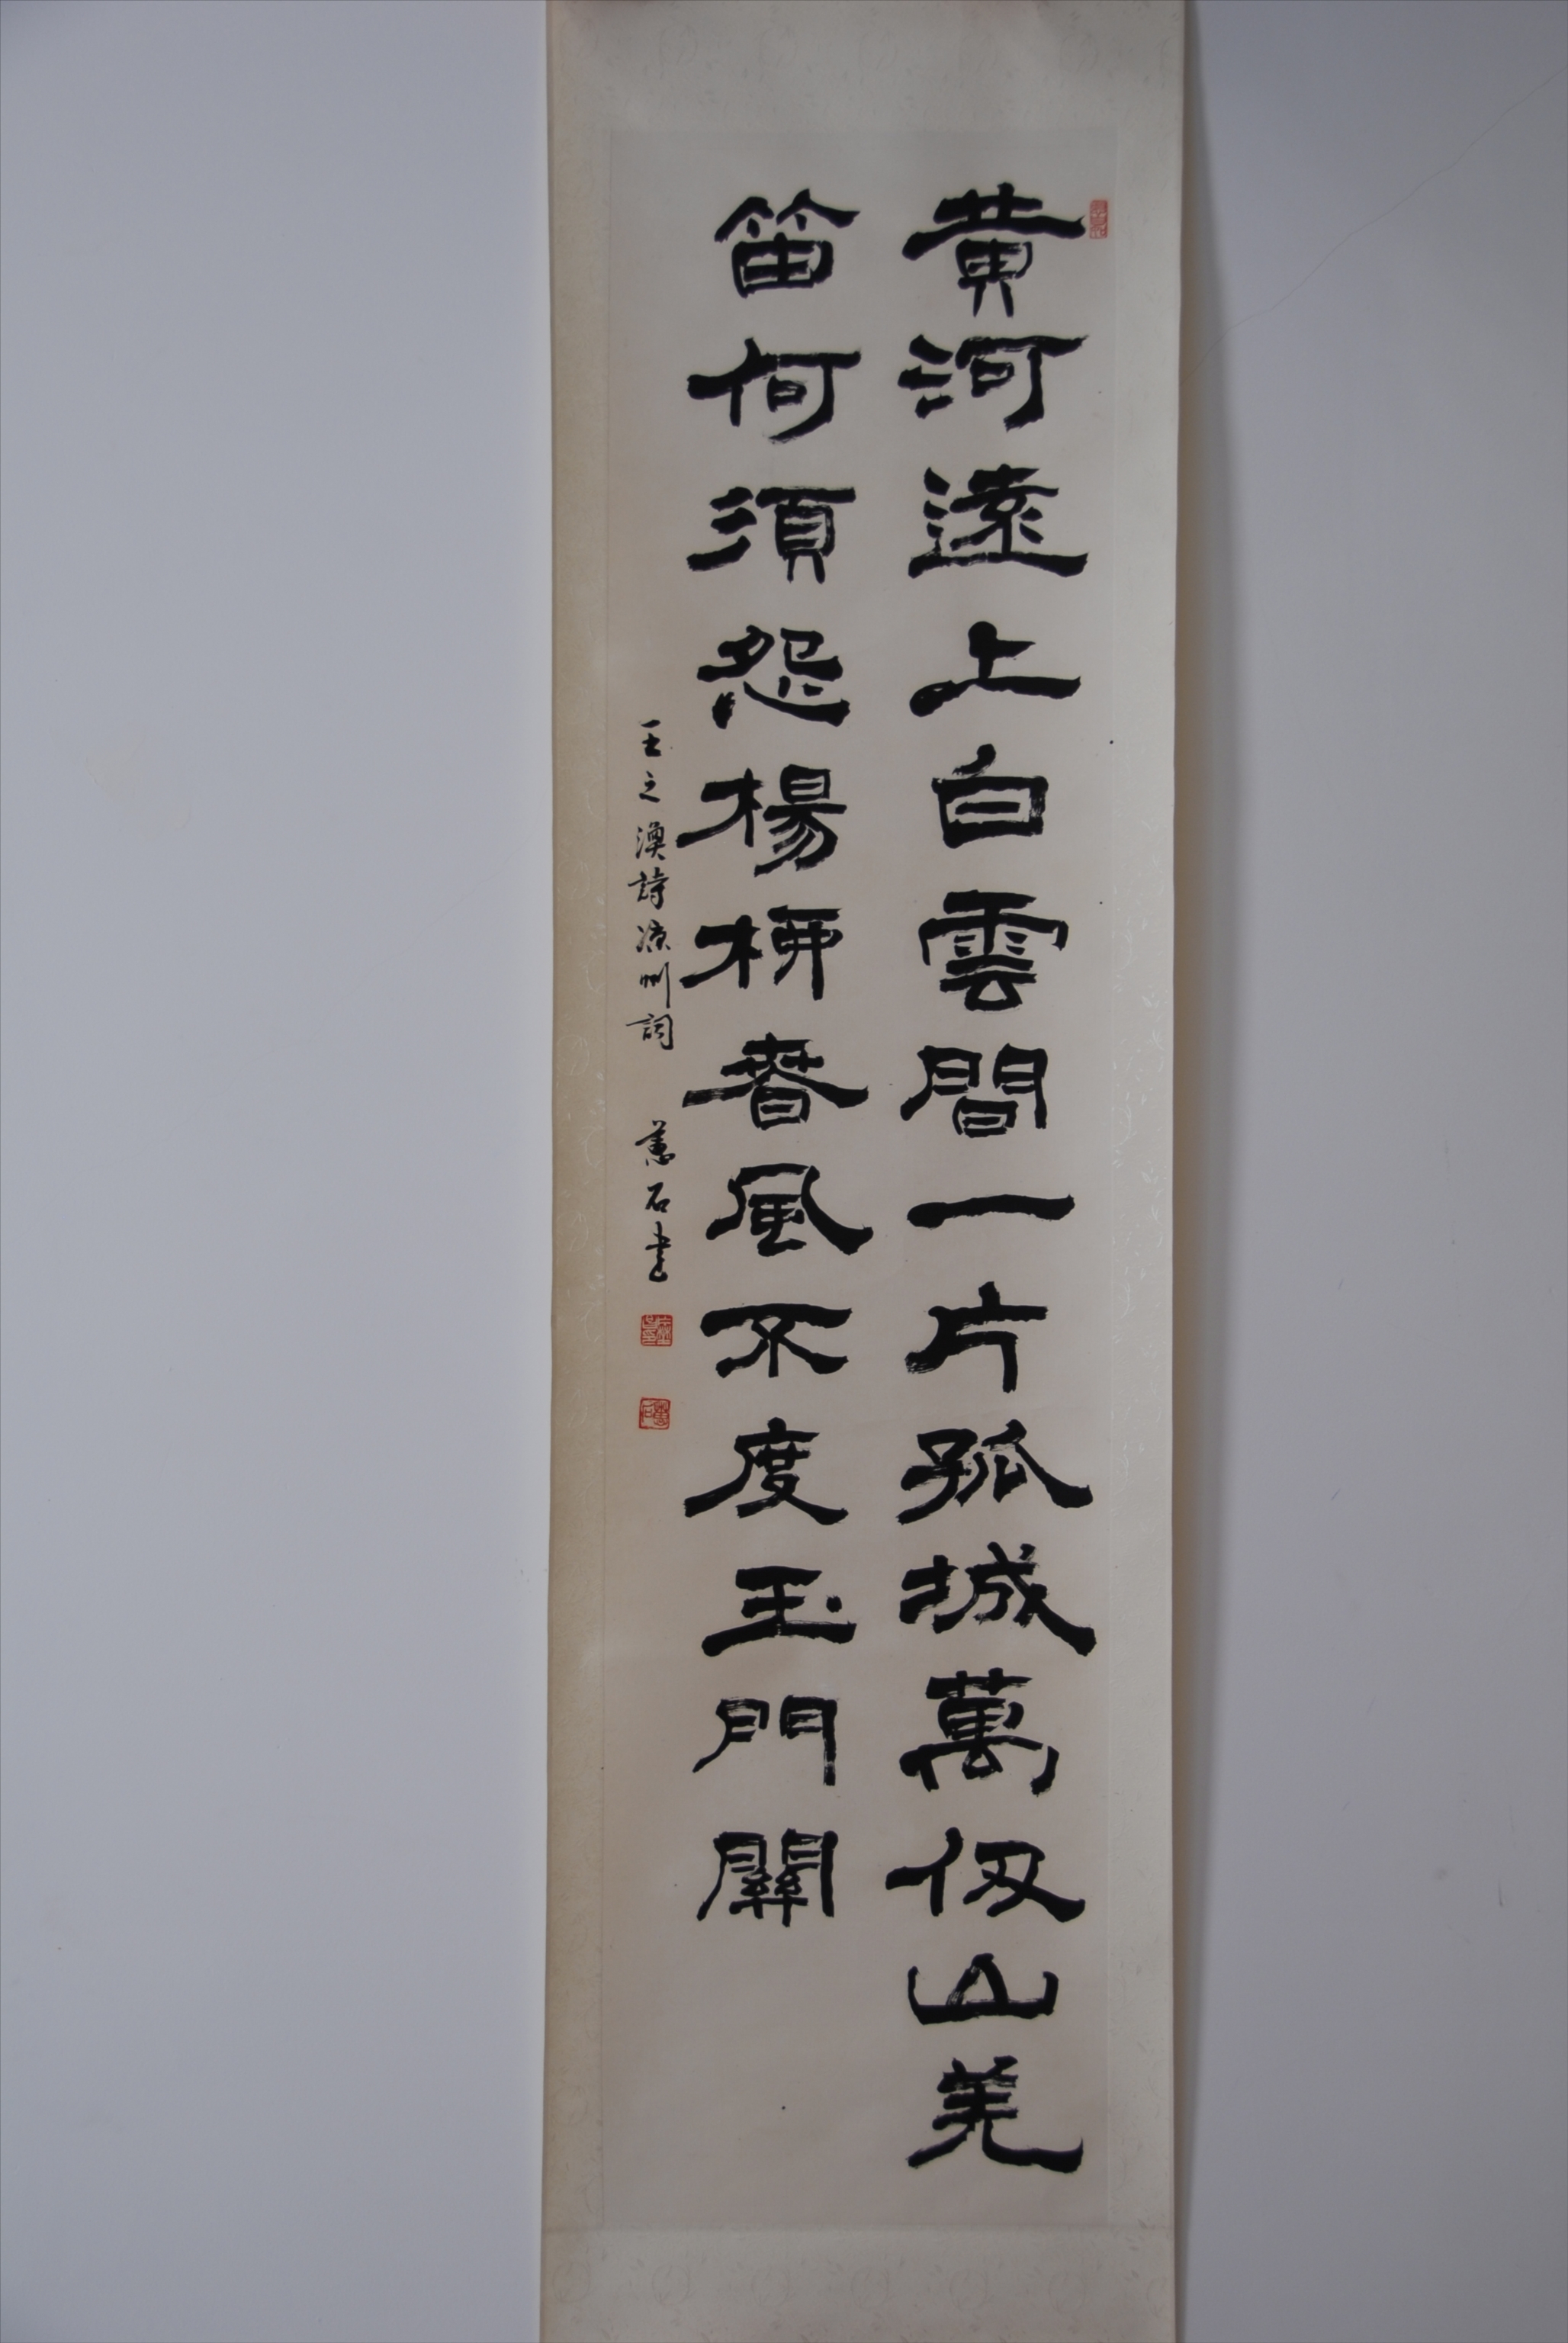 黄河遠上白雲間一片孤城萬仞山羌
笛何須怨楊柳春風不度玉門關
王之渙詩涼州詞 蕙石書